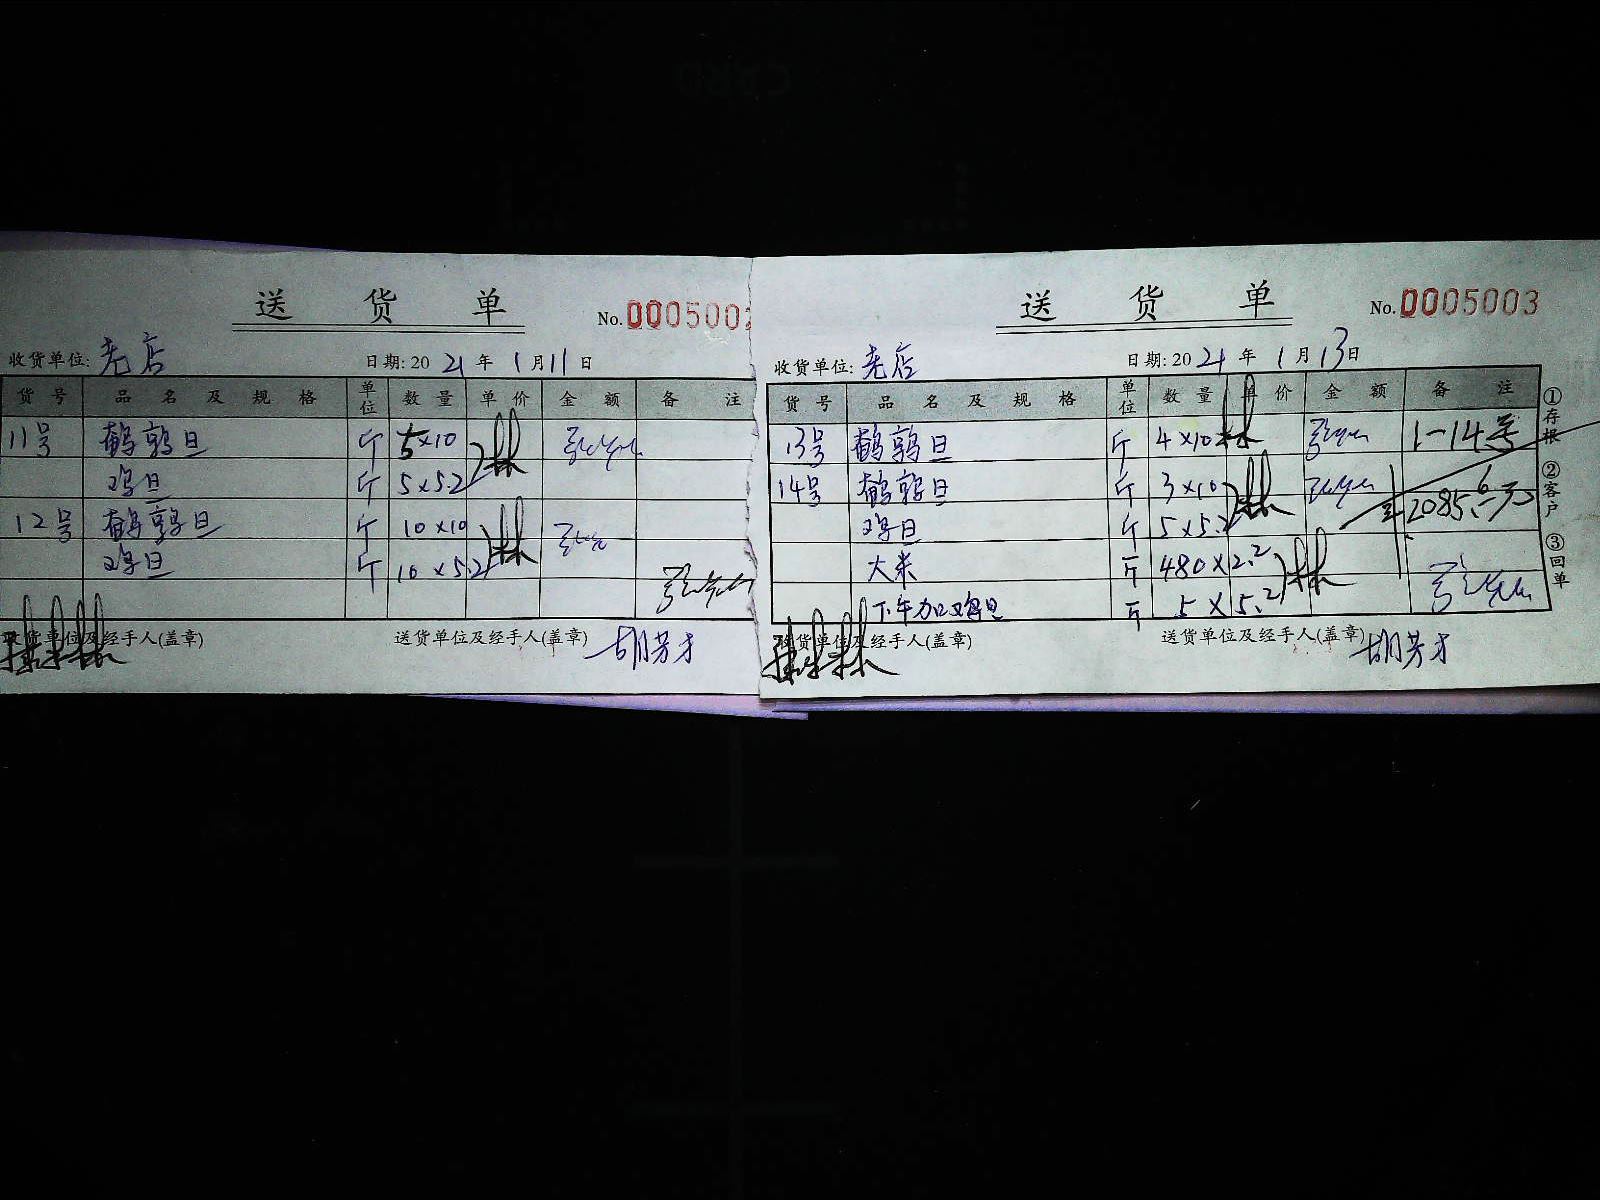 送货单
No.000500
收货单位: 老店 日期: 2021年1月11日
货号 品名及规格 单位 数量 单价 金额 备注
11号 鹌鹑旦 斤 5×10
鸡旦 斤 5×5.2
12号 鹌鹑旦 斤 10×10
鸡旦 斤 10×5.2
收货单位及经手人(盖章) 送货单位及经手人(盖章) 胡芳才
送货单
No.0005003
收货单位: 老店 日期: 2021年1月13日
货号 品名及规格 单位 数量 单价 金额 备注
13号 鹌鹑旦 斤 4×10 1-14号
14号 鹌鹑旦 斤 3×10 2085.6元
鸡旦 斤 5×5.2
大米 斤 480×2.2
下午加鸡旦 斤 5×5.2
收货单位及经手人(盖章) 送货单位及经手人(盖章) 胡芳才
①存根
②客户
③回单